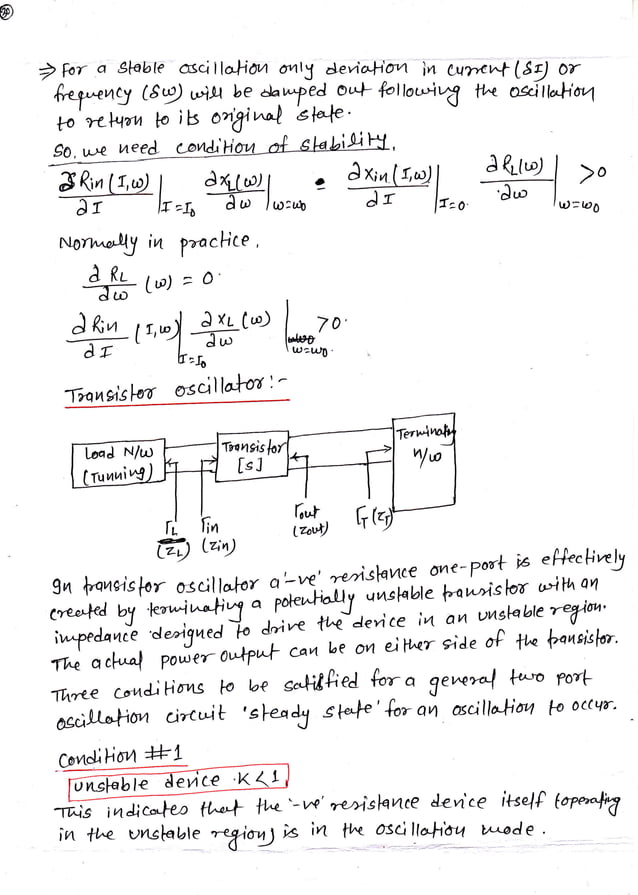 ⇒ For a stable oscillation only deviation in current (δI) or
frequency (δω) will be damped out following the oscillation
to return to its original state.
So, we need condition of stability,
∂Rin(I,ω)/∂I |I=I0 ∂XL(ω)/∂ω |ω=ω0 - ∂Xin(I,ω)/∂I |I=0 ∂RL(ω)/∂ω |ω=ω0 >0
Normally in practice,
∂RL/∂ω (ω) = 0.
∂Rin/∂I (I,ω)|I=I0 ∂XL(ω)/∂ω |ω=ω0 >0.
Transistor oscillator:-
Load N/W
(Tunning)
Transistor
[S]
Terminatg
n/w
ΓL
(ZL)
Γin
(Zin)
Γout
(Zout)
ΓT(ZT)
In transistor oscillator a '-ve' resistance one-port is effectively
created by terminating a potentially unstable transistor with an
impedance designed to drive the device in an unstable region.
The actual power output can be on either side of the transistor.
Three conditions to be satisfied for a general two port
oscillation circuit 'steady state' for an oscillation to occur.
Condition #1
unstable device K<1
This indicates that the '-ve' resistance device itself (operating
in the unstable region) is in the oscillation mode.